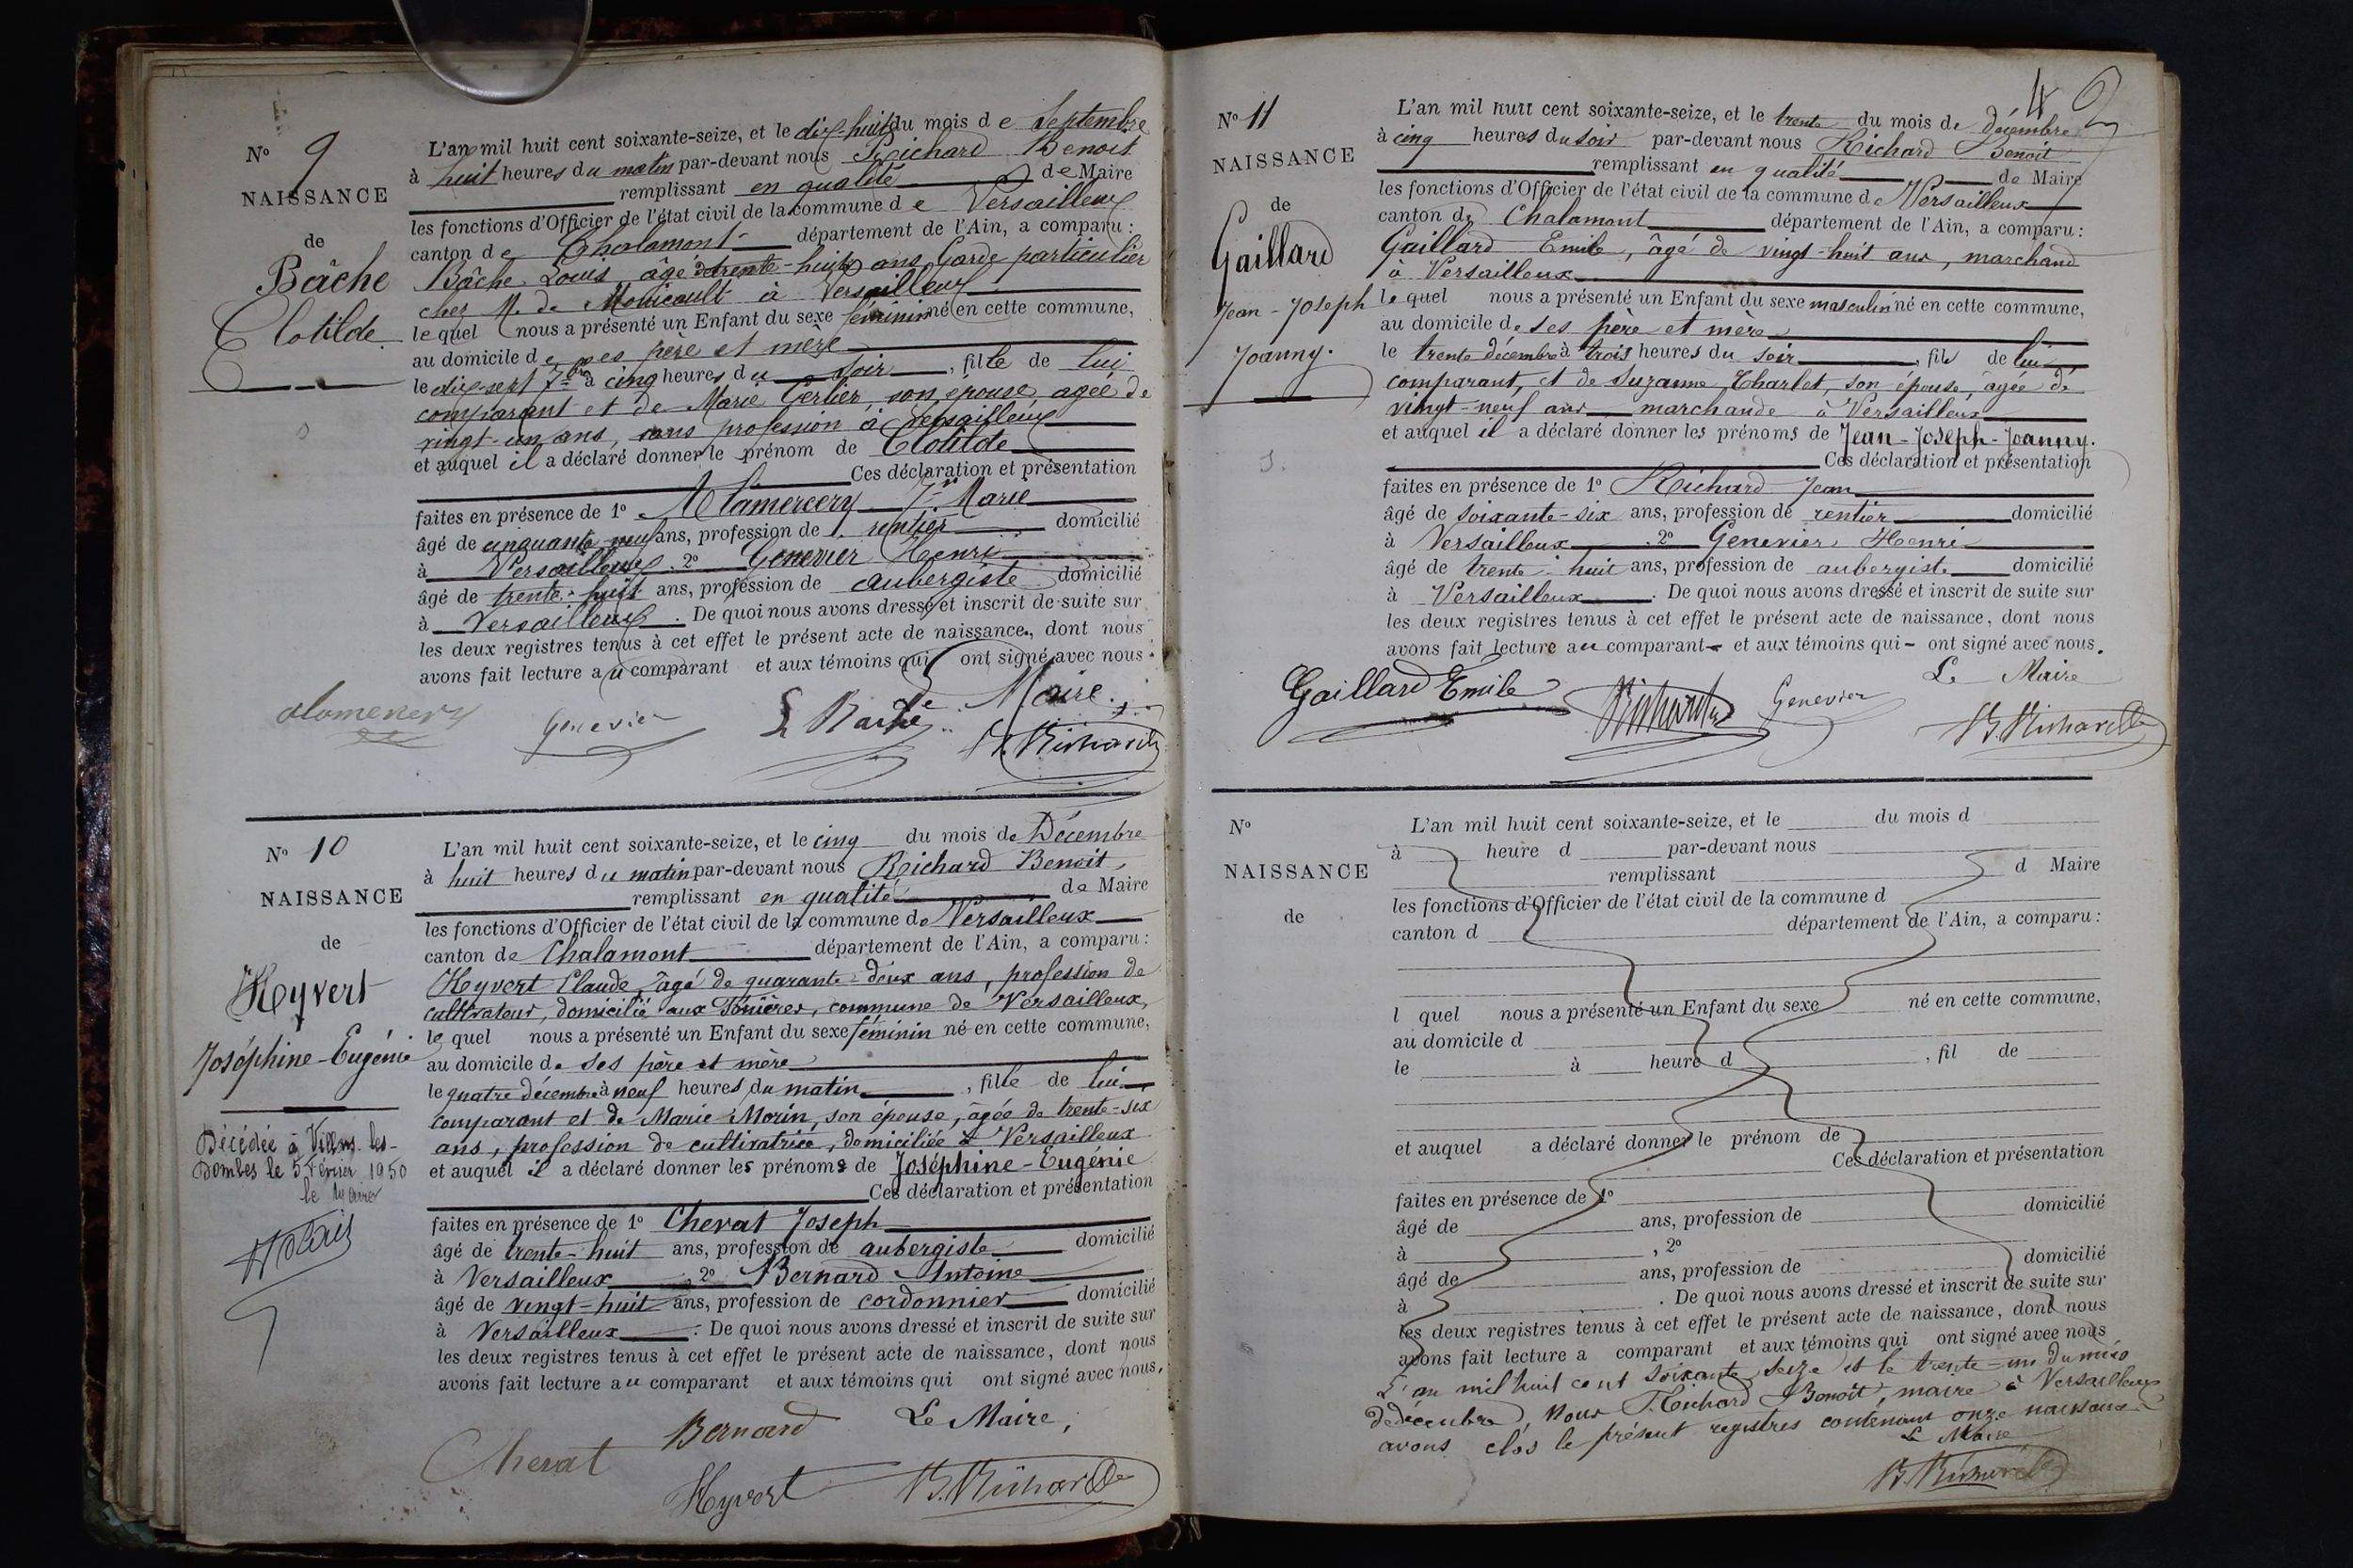 N° 9
NAISSANCE
de
Bâche
Clotilde
L'an mil huit cent soixante-seize, et le dix-huit du mois de Septembre
à huit heures du matin par-devant nous Richard Benoit
remplissant en qualité de Maire
les fonctions d'Officier de l'état civil de la commune de Versailleux
canton de Chalamont département de l'Ain, a comparu :
Bâche Louis, âgé de trente-huit ans Garde particulier
chez M. de Monicault à Versailleux
lequel nous a présenté un Enfant du sexe féminin né en cette commune,
au domicile de ses père et mère
le dix-sept 7bre à cinq heures du soir, fille de lui
comparant et de Marie Gerlier, son épouse, agée de
vingt-un ans, sans profession à Versailleux
et auquel il a déclaré donner le prénom de Clotilde
Ces déclaration et présentation
faites en présence de 1° Alamercery Marie
âgé de cinquante-neuf ans, profession de rentier domicilié
à Versailleux, 2° Genevier Henri
âgé de trente-huit ans, profession de aubergiste domicilié
à Versailleux. De quoi nous avons dressé et inscrit de suite sur
les deux registres tenus à cet effet le présent acte de naissance, dont nous
avons fait lecture au comparant et aux témoins qui ont signé avec nous.
Le Maire
alamercery Genevier L Bache B. Richard
N° 10
NAISSANCE
de
Hyvert
Joséphine-Eugénie
Décédée à Villars-les-
Dombes le 5 février 1950
le Maire
L'an mil huit cent soixante-seize, et le cinq du mois de Décembre
à huit heures du matin par-devant nous Richard Benoit,
remplissant en qualité de Maire
les fonctions d'Officier de l'état civil de la commune de Versailleux
canton de Chalamont département de l'Ain, a comparu :
Hyvert Claude, âgé de quarante-deux ans, profession de
cultivateur, domicilié aux commune de Versailleux,
lequel nous a présenté un Enfant du sexe féminin né en cette commune,
au domicile de ses père et mère
le quatre décembre à neuf heures du matin, fille de lui
comparant et de Marie Morin, son épouse, âgée de trente-six
ans, profession de cultivatrice, domiciliée à Versailleux
et auquel il a déclaré donner les prénoms de Joséphine-Eugénie
Ces déclaration et présentation
faites en présence de 1° Cherat Joseph
âgé de trente-huit ans, profession de aubergiste domicilié
à Versailleux, 2° Bernard Antoine
âgé de vingt-huit ans, profession de cordonnier domicilié
à Versailleux. De quoi nous avons dressé et inscrit de suite sur
les deux registres tenus à cet effet le présent acte de naissance, dont nous
avons fait lecture au comparant et aux témoins qui ont signé avec nous.
Cherat Bernard Le Maire,
Hyvert B. Richard
4
N° 11
NAISSANCE
de
Gaillard
Jean-Joseph
Joanny.
L'an mil huit cent soixante-seize, et le trente du mois de décembre
à cinq heures du soir par-devant nous Richard Benoit
remplissant en qualité de Maire
les fonctions d'Officier de l'état civil de la commune de Versailleux
canton de Chalamont département de l'Ain, a comparu :
Gaillard Emile, âgé de vingt-huit ans, marchand
à Versailleux
lequel nous a présenté un Enfant du sexe masculin né en cette commune,
au domicile de ses père et mère
le trente décembre à trois heures du soir, fils de lui
comparant, et de Suzanne Charlet, son épouse, âgée de
vingt-neuf ans marchande à Versailleux
et auquel il a déclaré donner les prénoms de Jean-Joseph-Joanny.
Ces déclaration et présentation
faites en présence de 1° Richard Jean
âgé de soixante-six ans, profession de rentier domicilié
à Versailleux, 2° Genevier Henri
âgé de trente-huit ans, profession de aubergiste domicilié
à Versailleux. De quoi nous avons dressé et inscrit de suite sur
les deux registres tenus à cet effet le présent acte de naissance, dont nous
avons fait lecture au comparant et aux témoins qui ont signé avec nous.
Le Maire
Gaillard Emile Richard Genevier B. Richard
N°
NAISSANCE
de
L'an mil huit cent soixante-seize, et le du mois d
à heure d par-devant nous
remplissant d Maire
les fonctions d'Officier de l'état civil de la commune d
canton d département de l'Ain, a comparu :
l quel nous a présenté un Enfant du sexe né en cette commune,
au domicile d
le à heure d , fil de
et auquel a déclaré donner le prénom de
Ces déclaration et présentation
faites en présence de 1°
âgé de ans, profession de domicilié
à , 2°
âgé de ans, profession de domicilié
à . De quoi nous avons dressé et inscrit de suite sur
les deux registres tenus à cet effet le présent acte de naissance, dont nous
avons fait lecture a comparant et aux témoins qui ont signé avec nous
L'an mil huit cent soixante seize et le trente-un du mois
de décembre, Nous Richard Benoit, maire à Versailleux
avons clos le présent registres contenant onze naissances
Le Maire
B. Richard